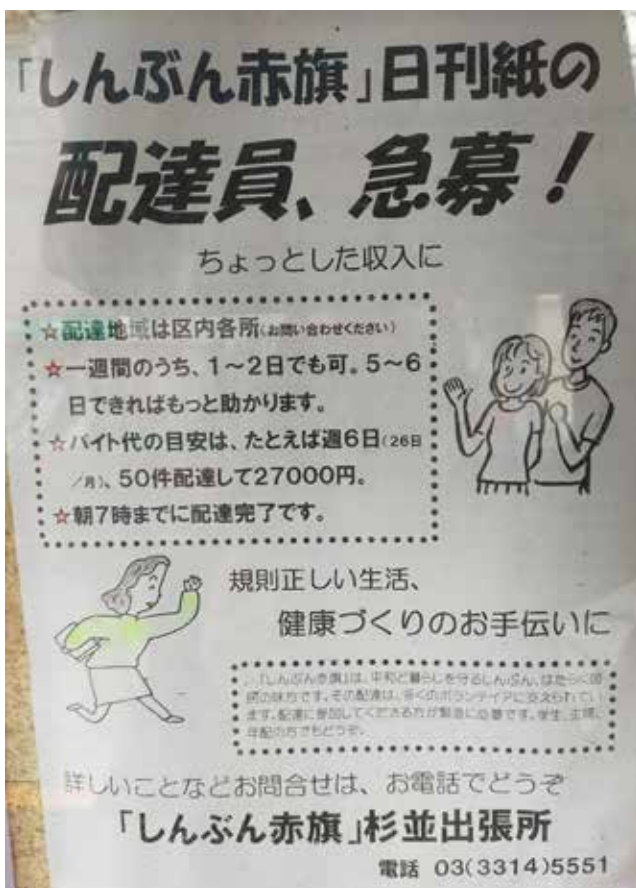 「しんぶん赤旗」日刊紙の
配達員、急募！
ちょっとした収入に
☆配達地域は区内各所(お問い合わせください)
☆一週間のうち、1～2日でも可。5～6
日できればもっと助かります。
☆バイト代の目安は、たとえば週6日(26日
/月)、50件配達して27000円。
☆朝7時までに配達完了です。
規則正しい生活、
健康づくりのお手伝いに
「しんぶん赤旗」は、平和と暮らしを守るしんぶん、はたらく国
民の味方です。その配達は、多くのボランティアに支えられてい
ます。配達に参加してくださる方が緊急に必要です。学生、主婦、
年配の方でもどうぞ。
詳しいことなどお問合せは、お電話でどうぞ
「しんぶん赤旗」杉並出張所
電話 03(3314)5551